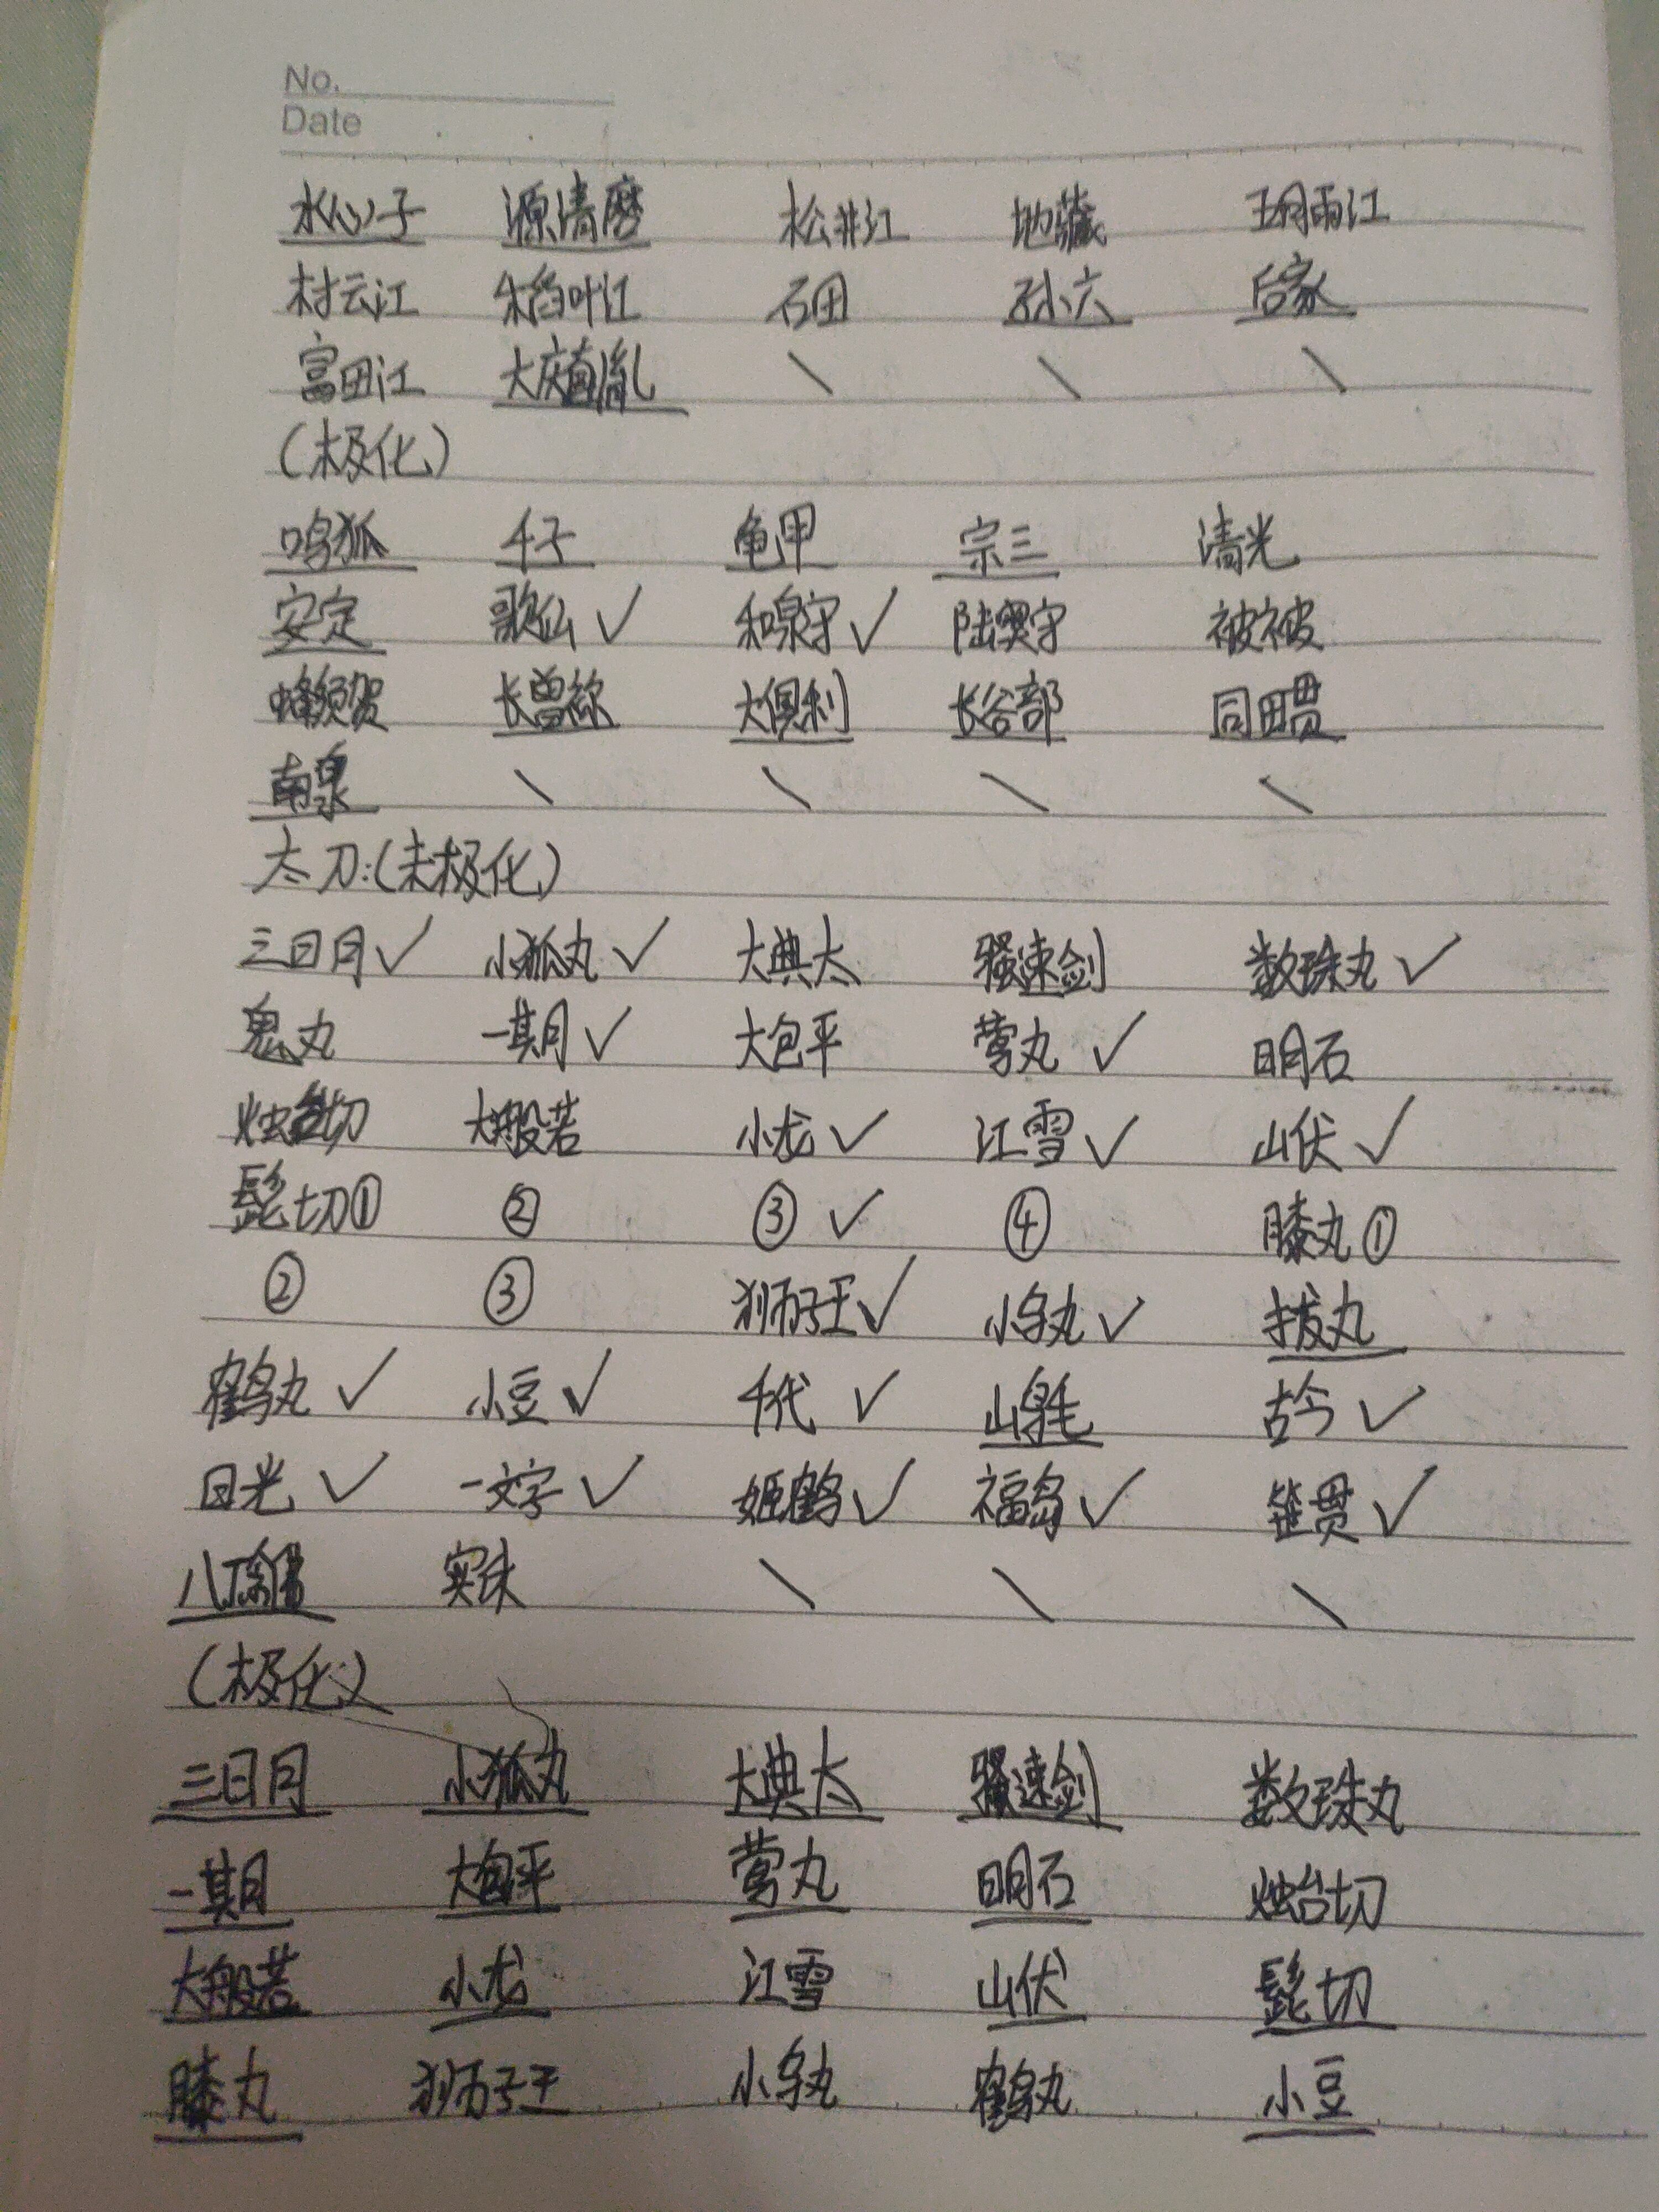 No.
Date
水心子 源清磨 松井江 地藏 五月雨江
村云江 稻叶江 石田 孙六 后家
富田江 大庆直胤 \ \ \
(极化)
鸣狐 千子 龟甲 宗三 清光
安定 歌仙✓ 和泉守✓ 陆奥守 被被
蜂须贺 长曾祢 大俱利 长谷部 同田贯
南泉 \ \ \ \
太刀:(未极化)
三日月✓ 小狐丸✓ 大典太 骚速剑 数珠丸✓
鬼丸 一期✓ 大包平 莺丸✓ 明石
烛台切 大般若 小龙✓ 江雪✓ 山伏✓
髭切① ② ③✓ ④ 膝丸①
② ③ 狮子王✓ 小乌丸✓ 拔丸
鹤丸✓ 小豆✓ 千代✓ 山鸟毛 古今✓
日光✓ 一文字✓ 姬鹤✓ 福岛✓ 笹贯✓
八丁 实休 \ \ \
(极化)
三日月 小狐丸 大典太 骚速剑 数珠丸
一期 大包平 莺丸 明石 烛台切
大般若 小龙 江雪 山伏 髭切
膝丸 狮子王 小乌丸 鹤丸 小豆